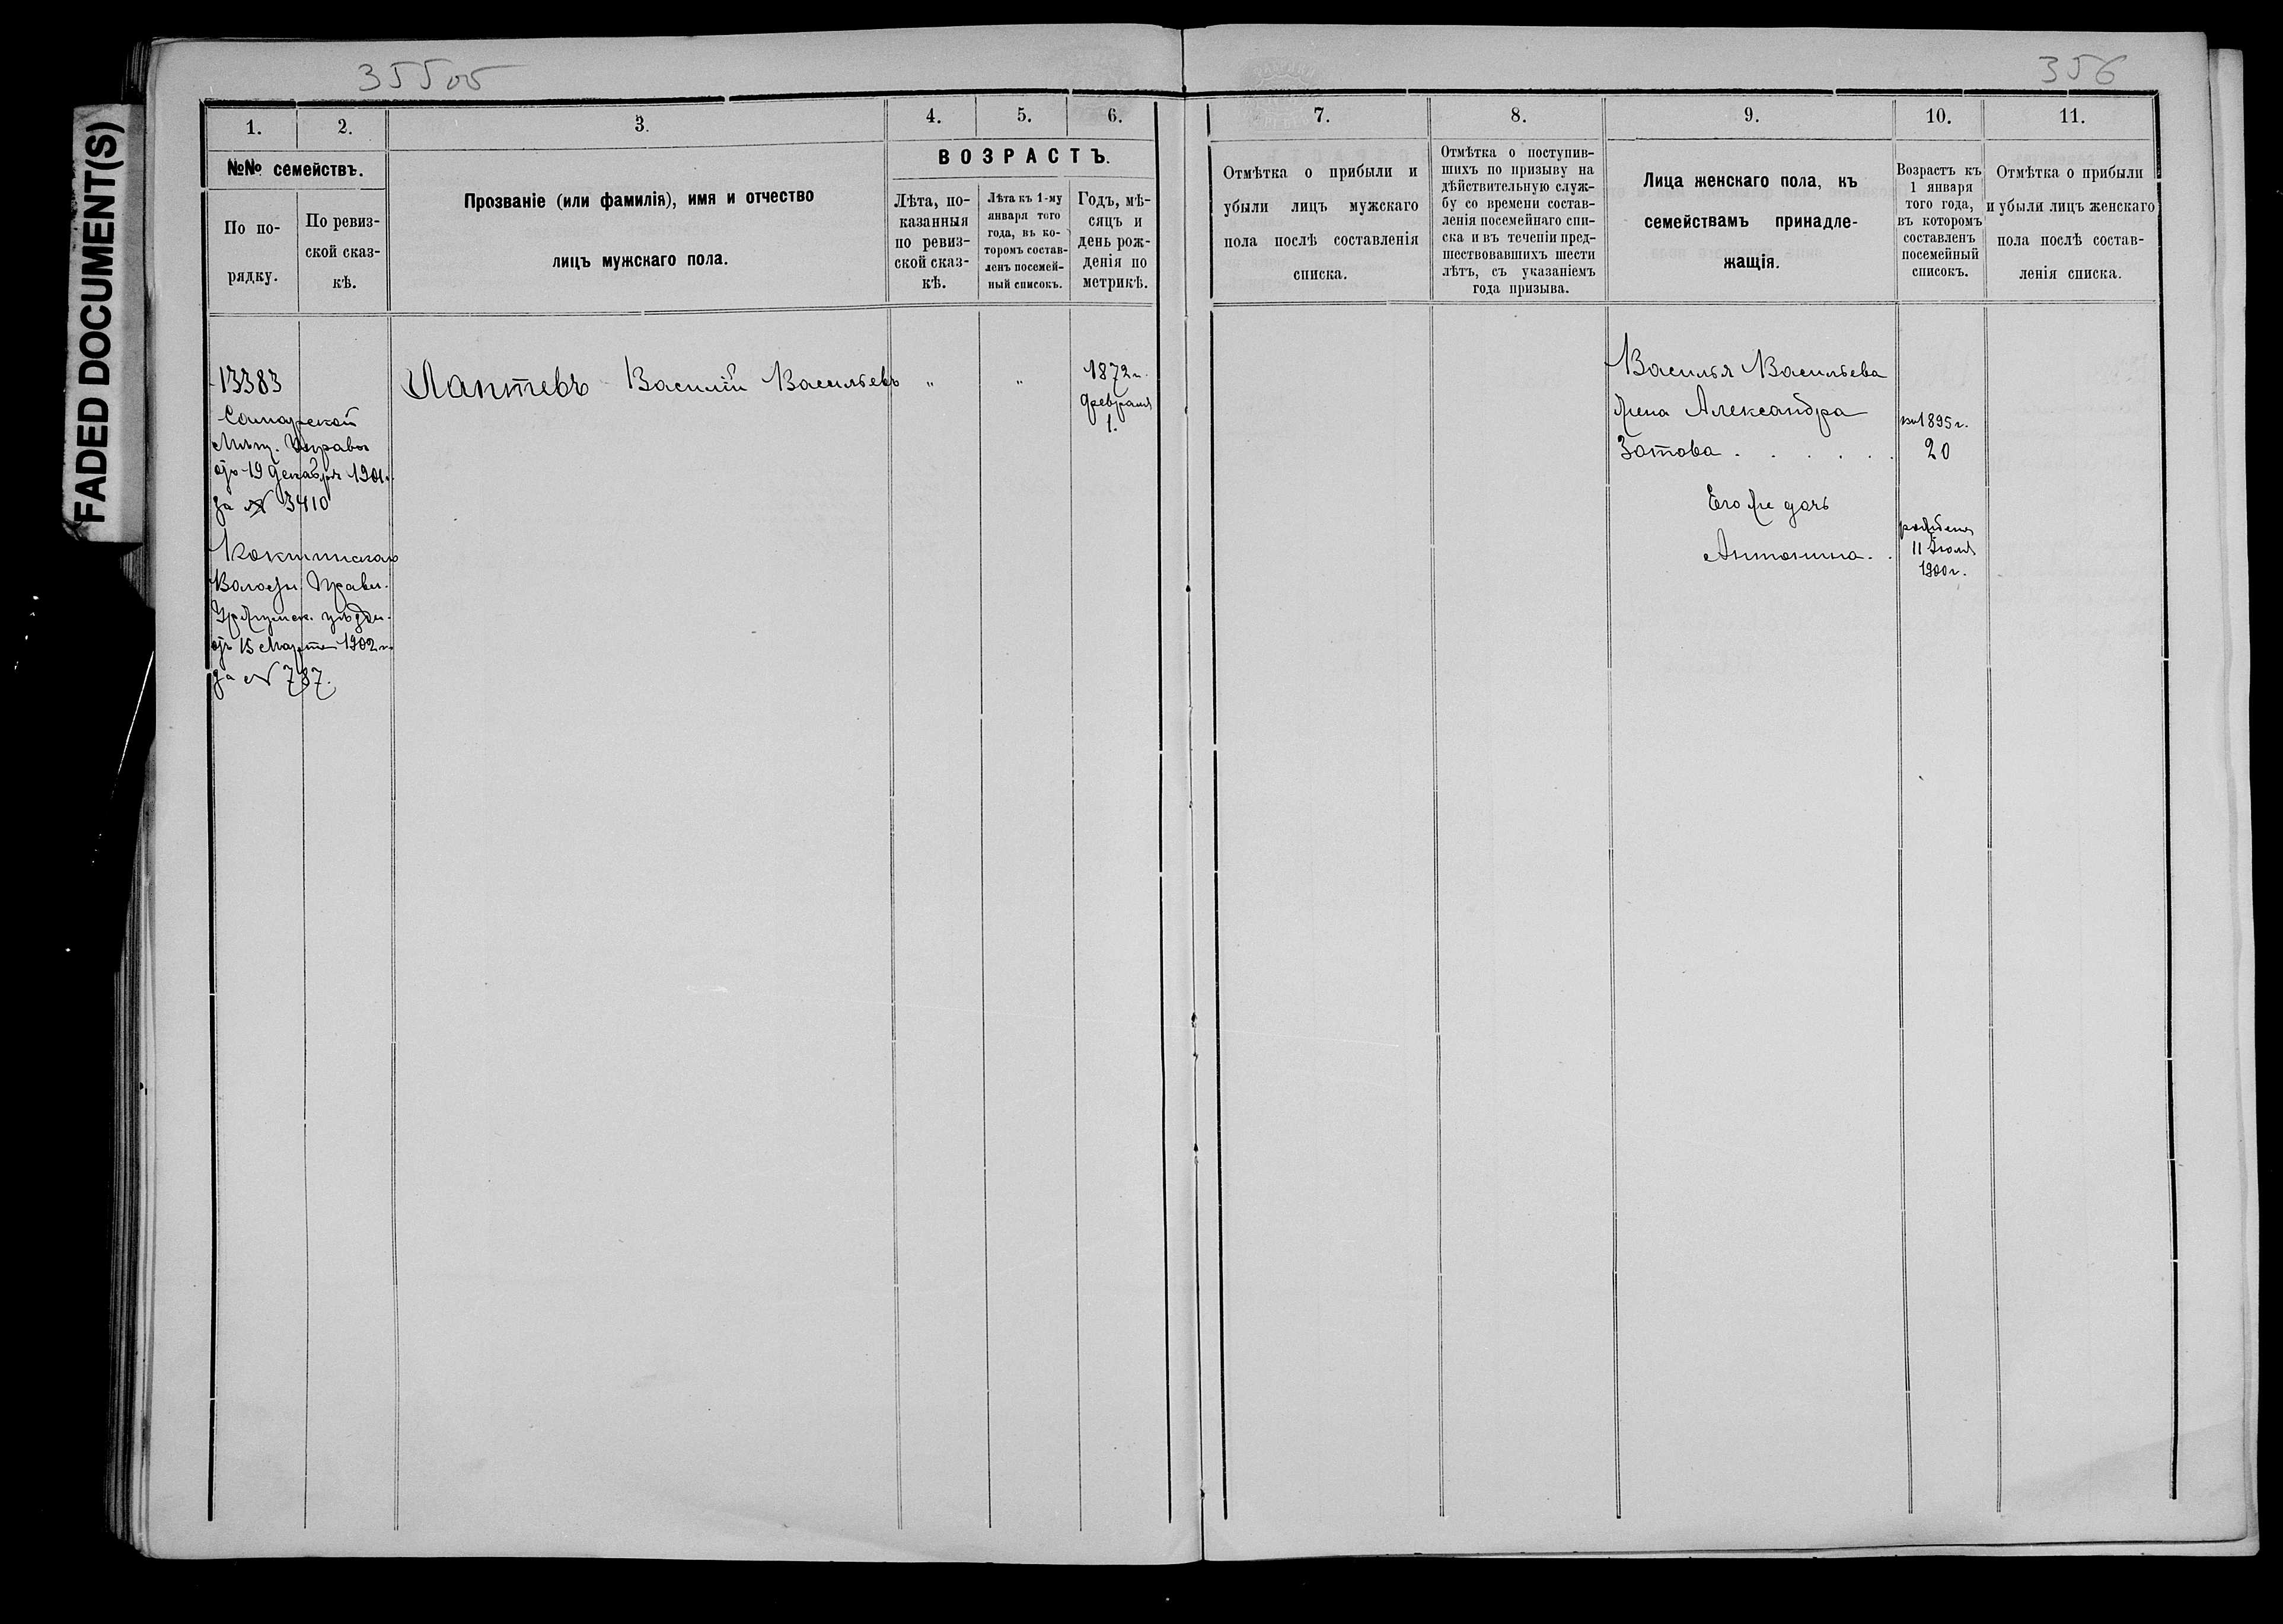 355об
356
FADED DOCUMENT(S)
1.
2.
3.
4.
5.
6.
№№ семействъ.
По по-
рядку.
По ревиз-
ской сказ-
кѣ.
Прозваніе (или фамилія), имя и отчество
лицъ мужскаго пола.
ВОЗРАСТЪ.
Лѣта, по-
казанныя
по ревиз-
ской сказ-
кѣ.
Лѣта къ 1-му
января того
года, въ ко-
торомъ состав-
ленъ посемей-
ный списокъ.
Годъ, мѣ-
сяцъ и
день рож-
денія по
метрикѣ.
13383
Самарской
Мѣщ. Управы
отъ 19 декабря 1901 г.
за № 3410
Волостн. Правл.
Уржумск. уѣзда
отъ 15 Марта 1902 г.
за № 737.
Лаптевъ Василій Васильевъ
"
"
1872 г.
Февраля
1.
7.
8.
9.
10.
11.
Отмѣтка о прибыли и
убыли лицъ мужскаго
пола послѣ составленія
списка.
Отмѣтка о поступив-
шихъ по призыву на
дѣйствительную служ-
бу со времени состав-
ленія посемейнаго спи-
ска и въ теченіи пред-
шествовавшихъ шести
лѣтъ, съ указаніемъ
года призыва.
Лица женскаго пола, къ
семействамъ принадле-
жащія.
Возрастъ къ
1 января
того года,
въ которомъ
составленъ
посемейный
списокъ.
Отмѣтка о прибыли
и убыли лицъ женскаго
пола послѣ состав-
ленія списка.
Василья Васильева
жена Александра
Зотова . . . . . .
въ 1895 г.
20
Его же дочь
Антонина. .
рождена
11 Іюля
1900 г.